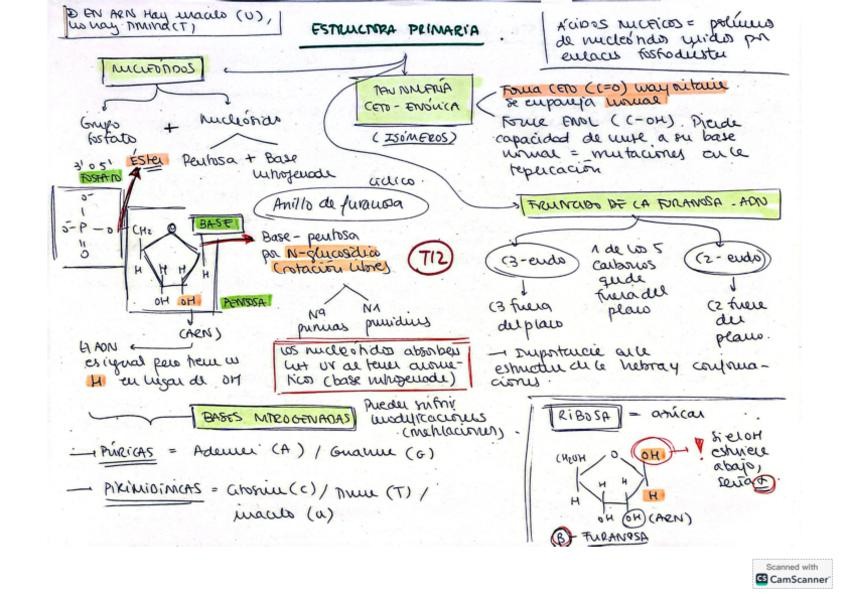 EN ARN Hay uracilo (U),
no hay timina (T)
ESTRUCTURA PRIMARIA
ÁCIDOS NUCLEICOS = polímeros
de nucleótidos unidos por
enlaces fosfodiester
NUCLEÓTIDOS
Grupo
fosfato
+
Nucleósido
Pentosa + Base
nitrogenada
TAUTOMERÍA
CETO-ENÓLICA
(ISÓMEROS)
Forma CETO (C=O) mayoritaria
se empareja normal
Forma ENOL (C-OH). Pierde
capacidad de unirse a su base
normal = mutaciones en la
replicación
3' o 5'
Éster
FOSFATO
O-
O- - P - O
O
CH2
O
BASE
H H H H
OH OH
PENTOSA
(ARN)
cíclico
Anillo de furanosa
Base - pentosa
por N-glucosídico
(rotación libre)
T12
N9
purinas
N1
pirimidinas
Los nucleótidos absorben
luz UV al tener aromá-
ticos (base nitrogenada)
El ADN
es igual pero tiene un
H en lugar de OH
FRUNCIDO DE LA FURANOSA - ADN
C3-endo
1 de los 5
carbonos
queda
fuera del
plano
C2-endo
C3 fuera
del plano
C2 fuera
del
plano.
→ Importancia en la
estructura de la hebra y conforma-
ciones.
BASES NITROGENADAS
Pueden sufrir
modificaciones
(metilaciones).
→ PÚRICAS = Adenina (A) / Guanina (G)
→ PIRIMIDÍNICAS = Citosina (C) / Timina (T) /
uracilo (U)
RIBOSA = azúcar
CH2OH
O
OH
H H H
H
OH OH (ARN)
β - FURANOSA
!
Si el OH
estuviere
abajo,
sería α
Scanned with
CS CamScanner